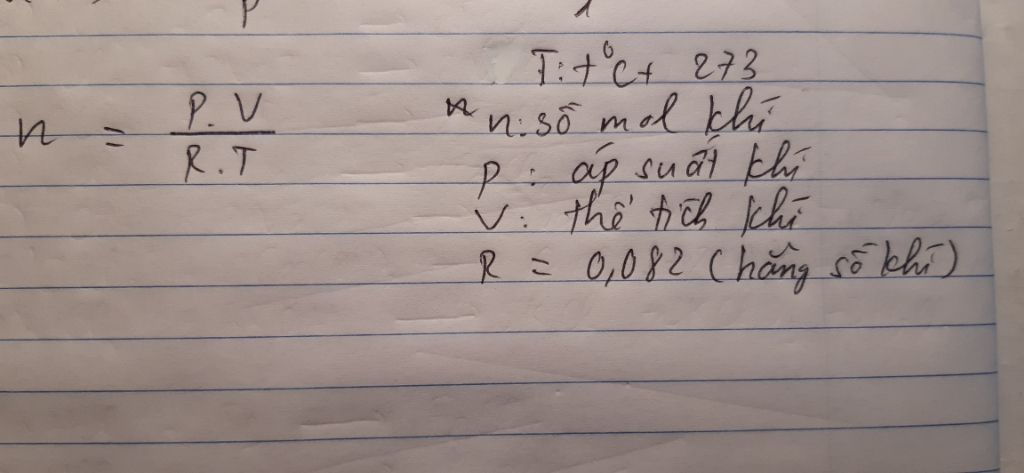 T: t°C + 273
n = P.V / R.T
n: số mol khí
P: áp suất khí
V: thể tích khí
R = 0,082 (hằng số khí)